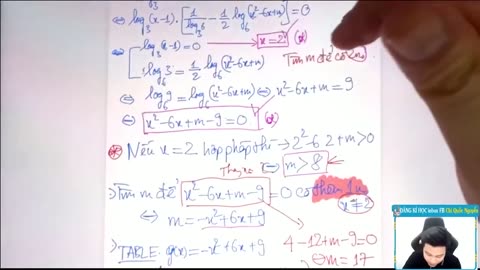 ⇔ log₃(x-1).[1/log₃6 - 1/2 log₆(x²-6x+m)] = 0
⇔ [log₃(x-1)=0 → x=2 (d)
Tìm m để có 2 no
log₆3 = 1/2 log₆(x²-6x+m)
⇔ log₆9 = log₆(x²-6x+m) ⇔ x²-6x+m=9
⇔ x²-6x+m-9=0 (d)
Nếu x=2 hợp pháp thì → 2²-6.2+m>0
⇔ m>8
Tìm m để x²-6x+m-9=0 có thêm 1 no x≠2
⇔ m=-x²+6x+9
TABLE: g(x)=-x²+6x+9
4-12+m-9=0
⇔ m=17
ĐĂNG KÍ HỌC inbox FB Chí Quốc Nguyễn